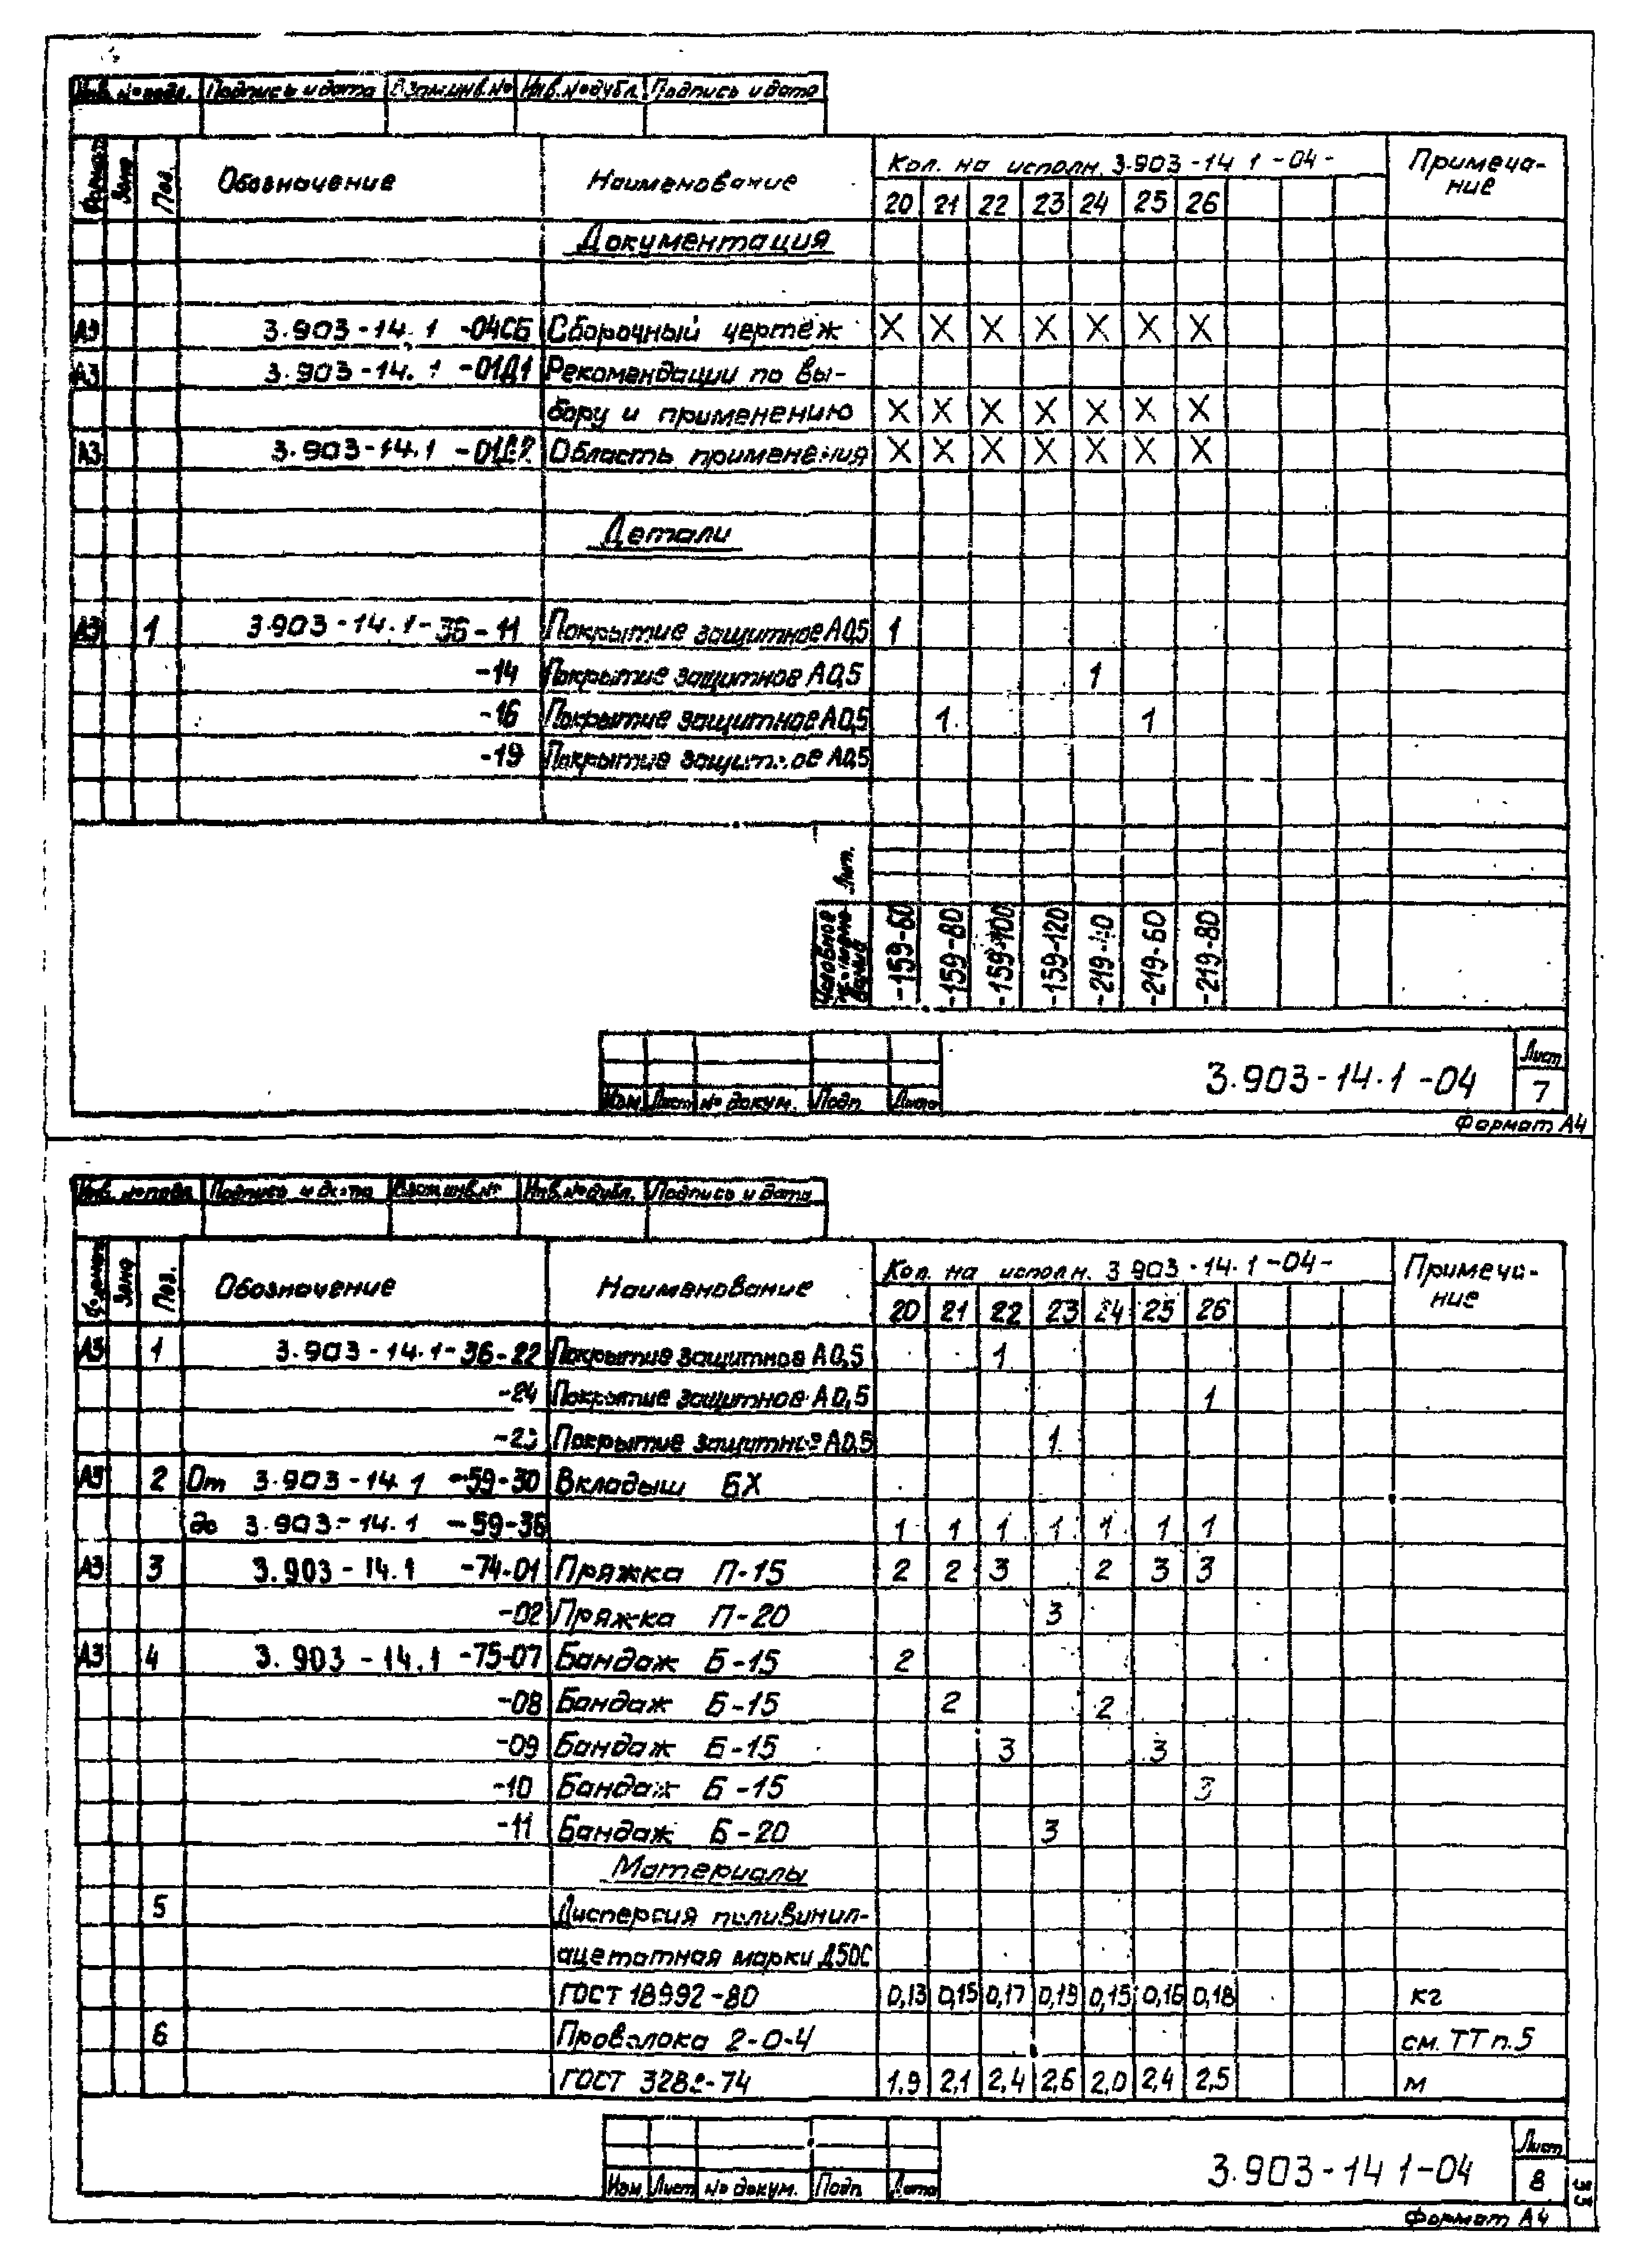 Инв. № подл. Подпись и дата Взам.инв.№ Инв.№дубл. Подпись и дата
Формат Зона Поз. Обозначение Наименование Кол. на исполн. 3.903-14 1-04- Примеча-
ние
20 21 22 23 24 25 26
Документация
А3 3.903-14.1 -04СБ Сборочный чертёж X X X X X X X
А3 3.903-14.1 -01Д1 Рекомендации по вы-
бору и применению X X X X X X X
А3 3.903-14.1 -01Д2 Область применения X X X X X X X
Детали
А3 1 3.903-14.1-36-11 Покрытие защитное А0,5 1
-14 Покрытие защитное А0,5 1
-16 Покрытие защитное А0,5 1 1
-19 Покрытие защитное А0,5
Лит.
Условное -159-60 -159-80 -159-100 -159-120 -219-40 -219-60 -219-80
3.903-14.1-04 Лист
7
Изм. Лист № докум. Подп Дата
Формат А4
Инв. № подл. Подпись и дата Взам.инв.№ Инв.№дубл. Подпись и дата
Формат Зона Поз. Обозначение Наименование Кол. на исполн. 3 903-14.1-04- Примеча-
ние
20 21 22 23 24 25 26
А3 1 3.903-14.1-36-22 Покрытие защитное А0,5 1
-24 Покрытие защитное А0,5 1
Покрытие защитное А0,5 1
А3 2 От 3.903-14.1 -59-30 Вкладыш БХ
до 3.903-14.1 -59-36 1 1 1 1 1 1 1
А3 3 3.903-14.1 -74-01 Пряжка П-15 2 2 3 2 3 3
-02 Пряжка П-20 3
А3 4 3.903-14.1 -75-07 Бандаж Б-15 2
-08 Бандаж Б-15 2 2
-09 Бандаж Б-15 3 3
-10 Бандаж Б-15 3
-11 Бандаж Б-20 3
Материалы
5 Дисперсия поливинил-
ацетатная марки Д50С
ГОСТ 18992-80 0,13 0,15 0,17 0,19 0,15 0,16 0,18 кг
6 Проволока 2-0-4 см. ТТ п.5
ГОСТ 3282-74 1,9 2,1 2,4 2,6 2,0 2,4 2,5 м
3.903-14 1-04 Лист
8
Изм Лист № докум. Подп Дата
Формат А4